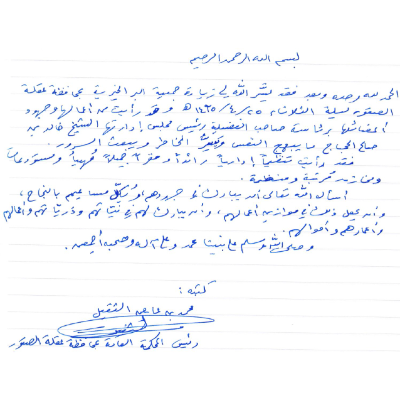 بسم الله الرحمن الرحيم
الحمد لله وحده وبعد فقد يسّر الله لي زيارة جمعية البر الخيرية بمحافظة عقلة
الصقور لليلة الثلاثاء ٢٥/٤/١٤٣٥هـ وقد رأيت من أعمالها وجهود
أعضائها برئاسة صاحب الفضيلة رئيس مجلس إدارتها الشيخ خالد بن
صالح ما يبهج النفس ويسرّ الخاطر ويبعث السرور.
فقد رأيت تنظيماً إدارياً رائداً ومقراً جميلاً مهيئاً ومستودعات
ومخازن مرتبة ومنظمة.
أسأل الله تعالى أن يبارك في جهودهم، وأن يكلل مساعيهم بالنجاح،
وأن يجعل ذلك في موازين أعمالهم، وأن يبارك لهم في نياتهم وذرياتهم وأعمالهم
وأعمارهم وأموالهم.
وصلى الله وسلم على نبينا محمد وعلى آله وصحبه أجمعين.
كتبه:
محمد بن
رئيس المحكمة العامة بمحافظة عقلة الصقور